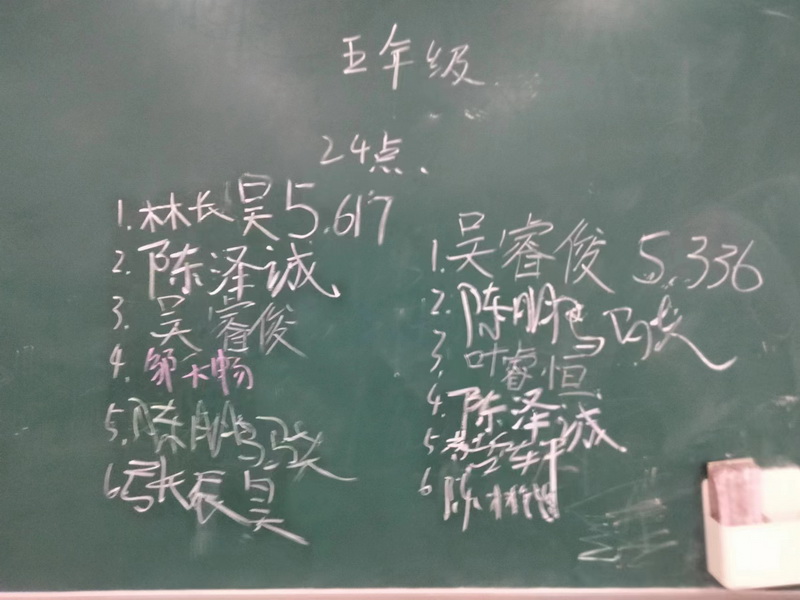 五年级
24点.
1.林长吴5.617
2.陈泽诚
3.吴睿俊
4.邹天畅
5.陈鹏
6.张辰昊
1.吴睿俊 5.336
2.陈鹏
3.叶睿恒
4.陈泽诚
5.
6.陈